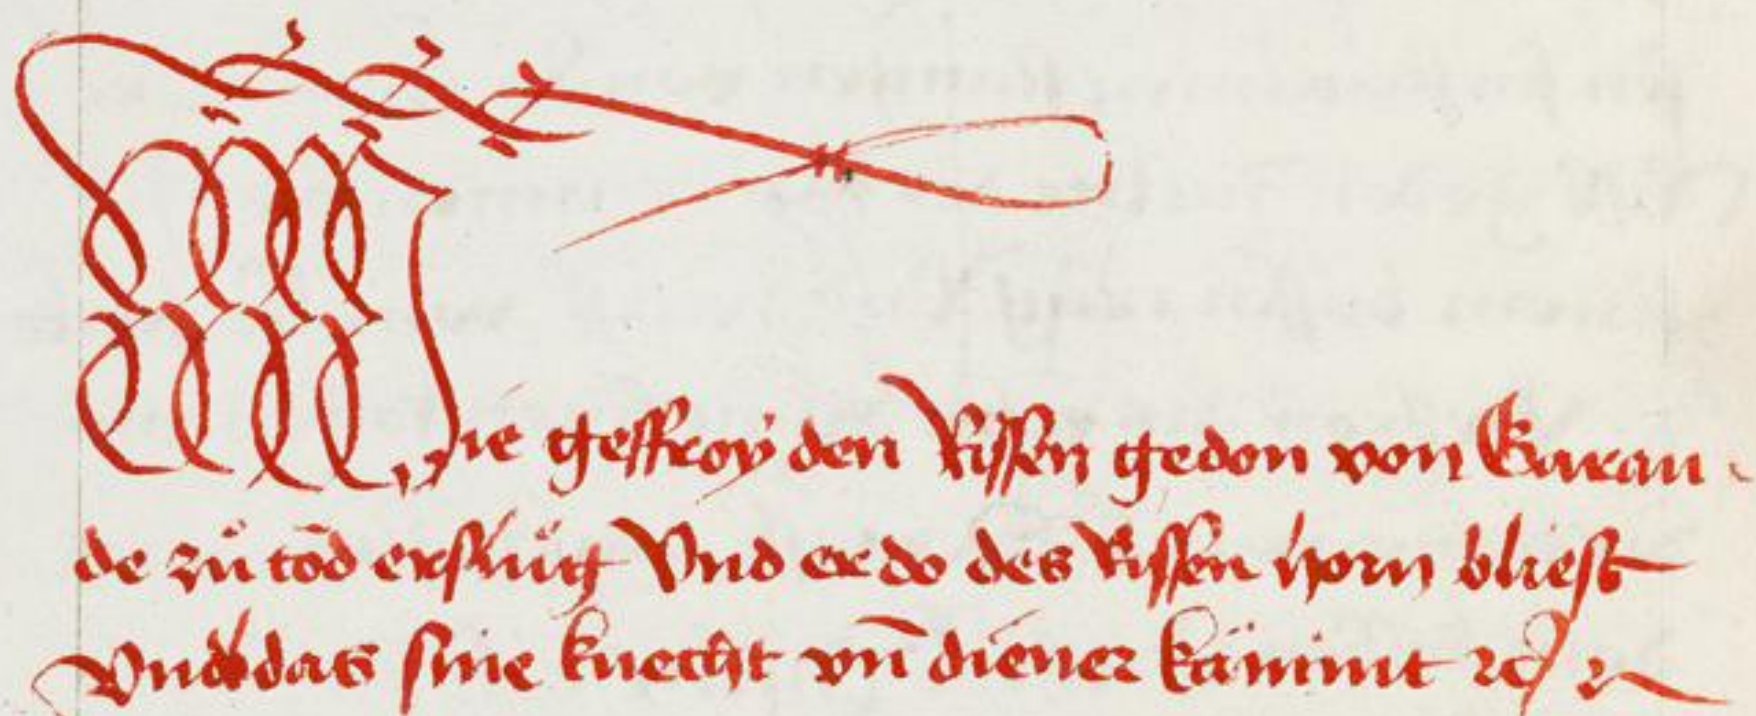 Wie geffroy den Rissen gedon von Garan-
de zů tod ersluͦg Vnd er do des Rissen horn bliesz
Vnd das sine knecht vn̄ diener kämint ⁊c